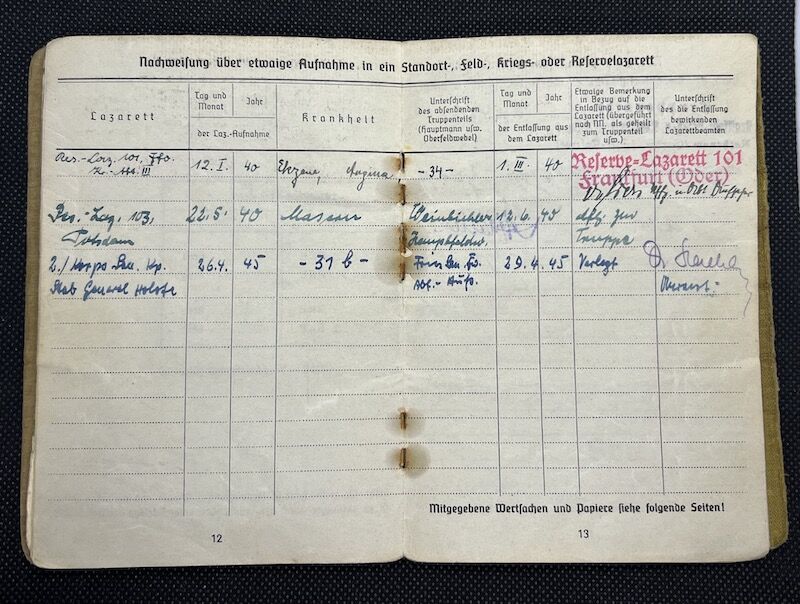 Nachweisung über etwaige Aufnahme in ein Standort-, Feld-, Kriegs- oder Reservelazarett
Lazarett
Tag und Monat
Jahr
der Laz.-Aufnahme
Krankheit
Unterschrift
des absendenden
Truppenteils
(Hauptmann usw.
Oberfeldwebel)
Tag und Monat
Jahr
der Entlassung aus
dem Lazarett
Etwaige Bemerkung
in Bezug auf die
Entlassung aus dem
Lazarett (übergeführt
nach NN. als geheilt
zum Truppenteil
usw.)
Unterschrift
des die Entlassung
bewirkenden
Lazarettbeamten
Res.-Laz. 101, Ffo. 12. I. 40 Angina, -34- 1. III. 40 Reserve-Lazarett 101
III Frankfurt (Oder)
Res.-Laz. 103, 22.5. 40 Masern 12.6. 40 zur
Potsdam Truppe
2./ Korps San. Kp. 26.4. 45 -31 b- 29.4.45 Verlegt Dr.
Stab General Holste
Mitgegebene Wertsachen und Papiere siehe folgende Seiten!
12
13